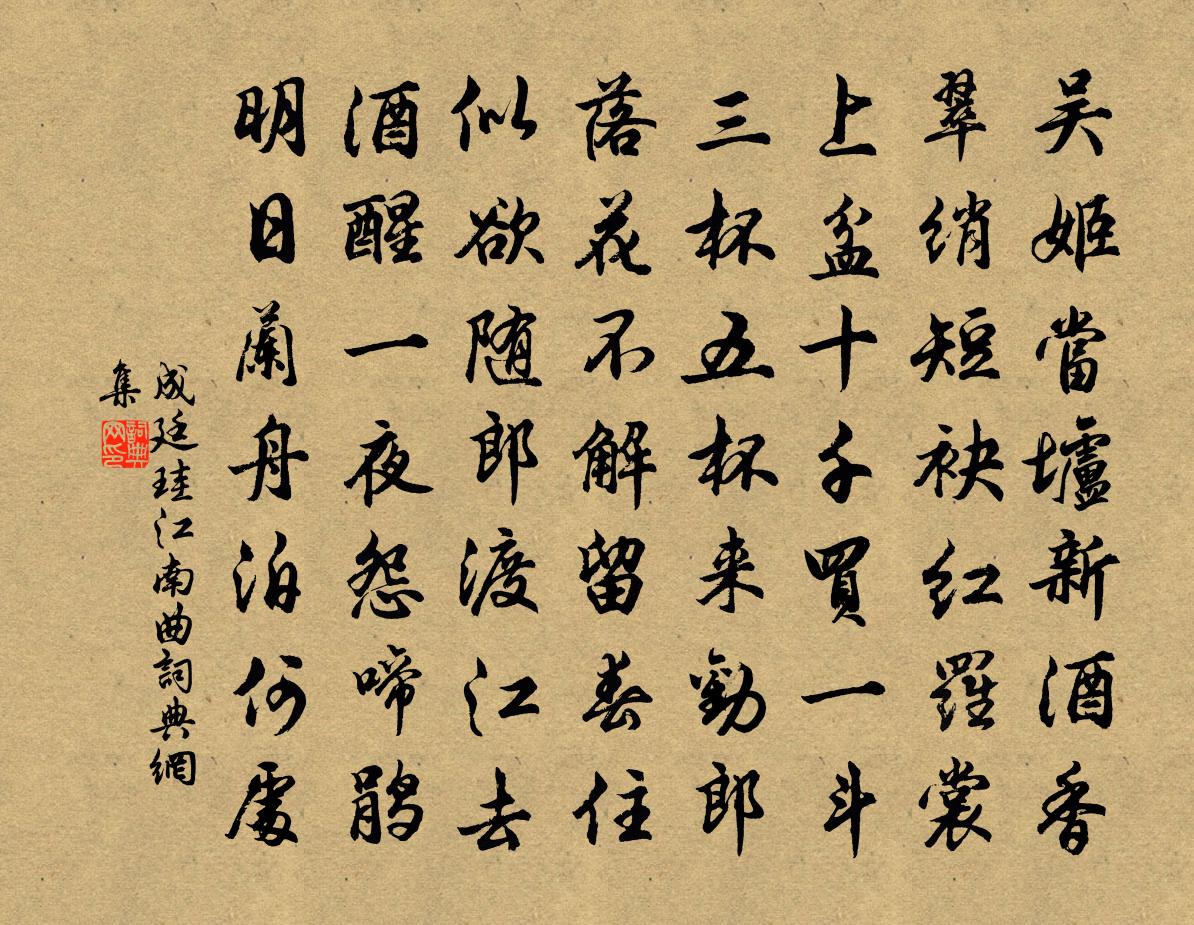 吴姬當壚新酒香
翠綃短袂红羅裳
上盆十千買一斗
三杯五杯来勸郎
落花不解留春住
似欲随郎渡江去
酒醒一夜怨啼鹃
明日蘭舟泊何處
成廷珪江南曲詞典網
集
詞典网印